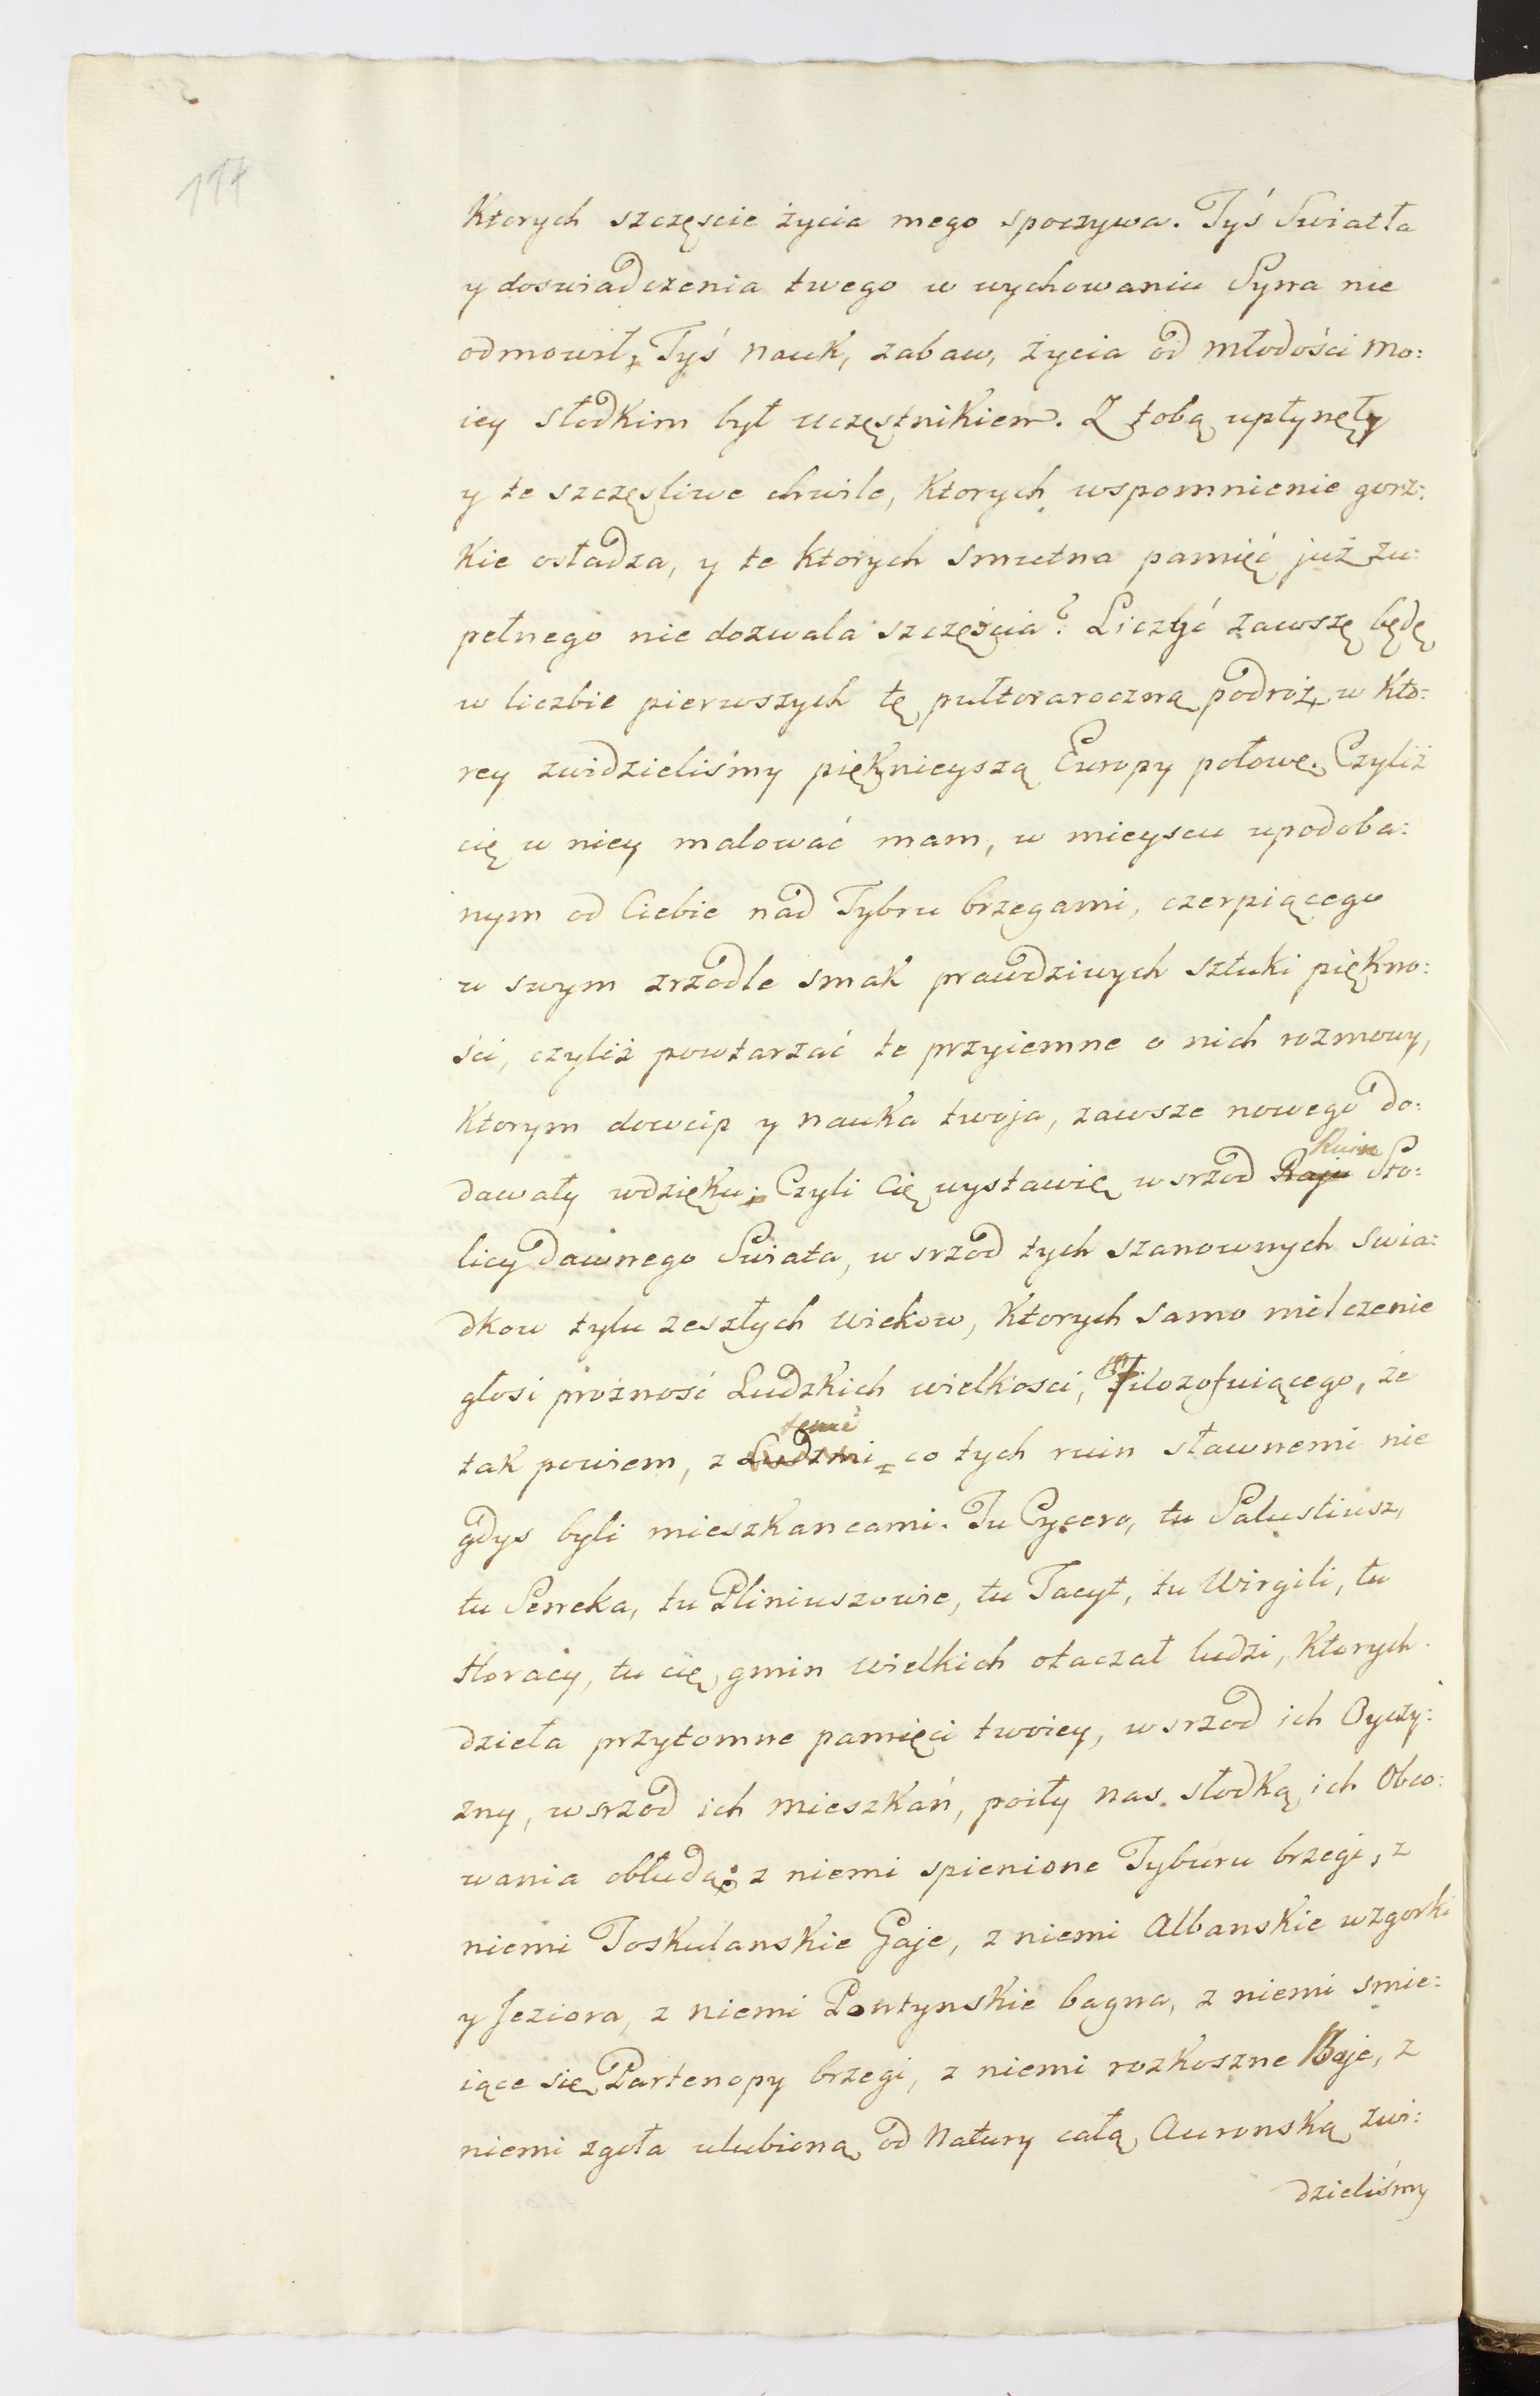 114
Ktorych szczęscie życia mego spoczywa. Tyś Swiatła
y doswiadczenia twego w wychowaniu Syna nie
odmowił, Tyś nauk, zabaw, życia od młodości mo:
iey słodkim był uczęstnikiem. Z tobą upłynęły
y te szczęsliwe chwile, Ktorych wspomnienie gorz:
Kie osładza, y te Ktorych smutna pamięć już zu:
pełnego nie dozwala szczęścia? Liczyć zawszę będę
w liczbie pierwszych tę pułtoraroczną podroż, w Kto:
rey zwidzieliśmy pięknieyszą Europy połowę. Czyliż
cię w niey malować mam, w mieyscu upodoba:
nym od Ciebie nad Tybru brzegami, czerpiącego
w swym zrzodle smak prawdziwych sztuki piękno:
ści, czyliż powtarzać te przyiemne o nich rozmowy,
Ktorym dowcip y nauka twoja, zawsze nowego do:
dawały wdzięku; Czyli Cię wystawię wsrzod Raju Ruin Sto:
licy dawnego Swiata, wsrzod tych szanownych swia:
dkow tylu zeszłych wiekow, Ktorych samo milczenie
głosi prożność Ludzkich wielkosci, Filozofuiącego, że
tak powiem, z Ludzmi temi co tych ruin sławnemi nie
gdys byli mieszkancami. Tu Cycero, tu Salustiusz,
tu Seneka, tu Pliniuszowie, tu Tacyt, tu Wirgili, tu
Horacy, tu cię gmin wielkich otaczał ludzi, Ktorych
dzieła przytomne pamięci twoiey, wsrzod ich Oyczy:
zny, wsrzod ich mieszkań, poiły nas słodką ich Obco:
wania obłudą: z niemi spienione Tyburu brzegi, z
niemi Toskulanskie Gaje, z niemi Albanskie wzgorki
y Jeziora, z niemi Pontynskie bagna, z niemi smie:
iące się Partenopy brzegi, z niemi rozkoszne Baje, z
niemi zgoła ulubioną od Natury całą Auronską zwi:
dzieliśmy